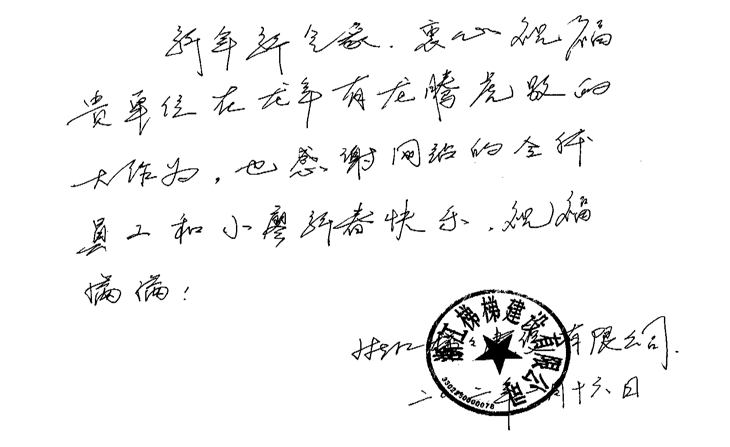 新年新气象.衷心祝福
贵单位在龙年有龙腾虎跃的
大作为,也感谢网站的全体
员工和小廖新春快乐.祝福
满满!
浙江梯梯建设有限公司
3302890000078
有限公司.
二〇一二年 月十六日